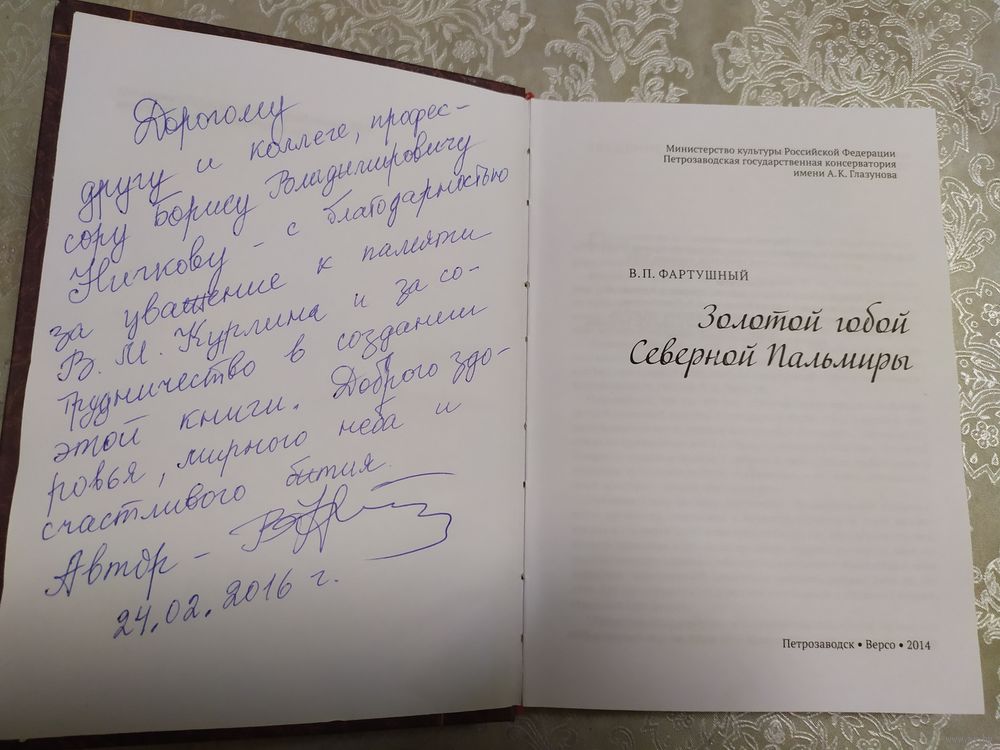 Дорогому
другу и коллеге, профес-
сору Борису Владимировичу
Ничкову - с благодарностью
за уважение к памяти
В. М. Курлина и за со-
трудничество в создании
этой книги. Доброго здо-
ровья, мирного неба и
счастливого бытия.
Автор -
24.02.2016 г.
Министерство культуры Российской Федерации
Петрозаводская государственная консерватория
имени А. К. Глазунова
В.П. ФАРТУШНЫЙ
Золотой гобой
Северной Пальмиры
Петрозаводск • Версо • 2014